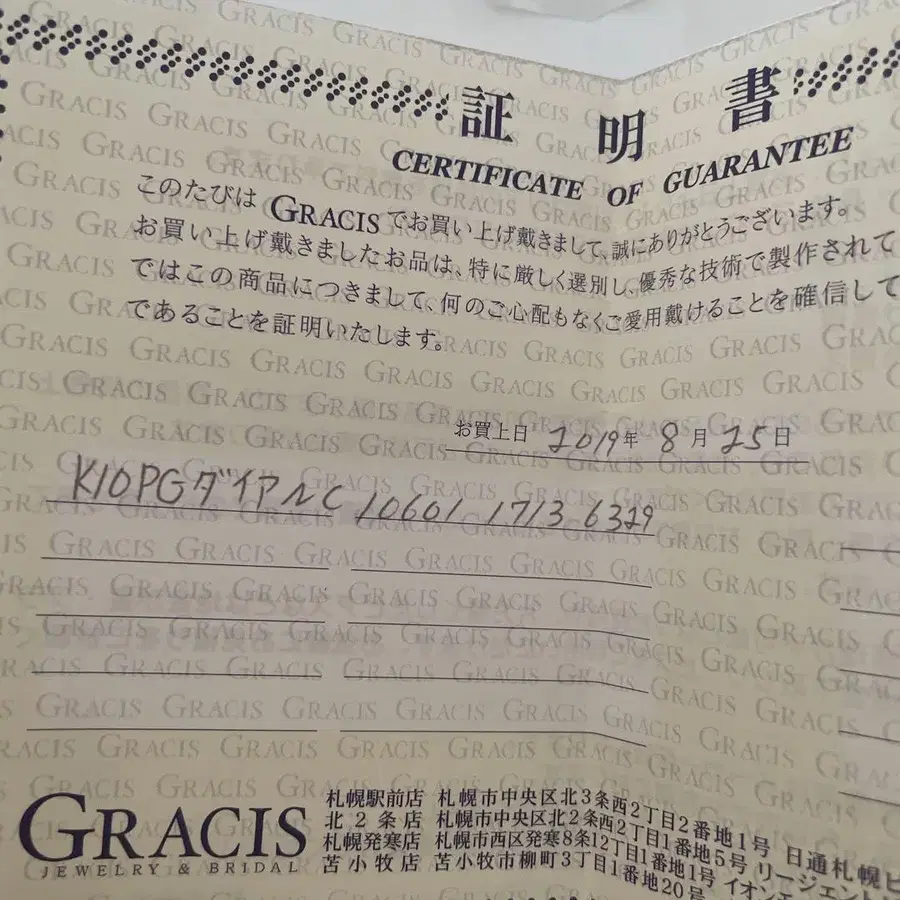 証明書
CERTIFICATE OF GUARANTEE
このたびは GRACIS でお買い上げ戴きまして、誠にありがとうございます。
お買い上げ戴きましたお品は、特に厳しく選別し、優秀な技術で製作されて
ではこの商品につきまして、何のご心配もなくご愛用戴けることを確信して
であることを証明いたします。
お買上日 2019年 8月 25日
K10PGダイアルC 10601 1713 6329
GRACIS
JEWELRY & BRIDAL
札幌駅前店 札幌市中央区北3条西2丁目2番地1号 日通札幌ビ
北2条店 札幌市中央区北2条西2丁目1番地5号 リージェント
札幌発寒店 札幌市西区発寒8条12丁目1番地1号 イオン
苫小牧店 苫小牧市柳町3丁目1番地20号